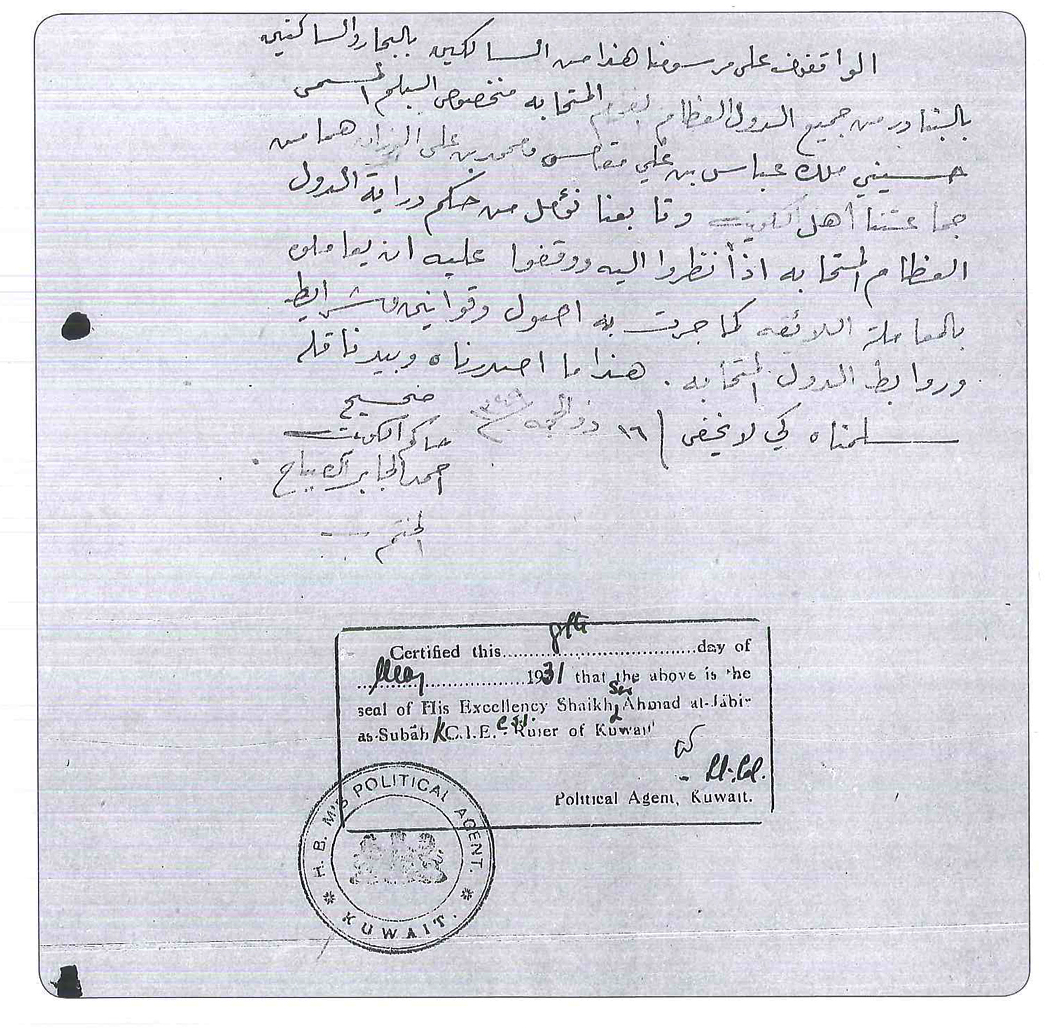 الواقفون على مرسومنا هذا من السالكين بالبحار والساكنين
بالبنادر من جميع الدول العظام المتحابه منخصوص البلم المسمى
حسيني ملك عباس بن علي ومحمد بن علي هما من
جماعتنا أهل الكويت وتابعنا نؤمل من حكم وراية الدول
العظام المتحابه اذا نظروا اليه ووقفوا عليه ان يعاملوه
بالمعاملة اللائقه كما جرت به اصول وقوانين شرايط
وروابط الدول المتحابه . هذا ما اصدرناه وبيدنا قد
سلمناه كي لا يخفى ١٦ ذو الحجه
صحيح
حاكم الكويت
احمد الجابر الصباح
Certified this.................day of
May 1931 that the above is the
seal of His Excellency Shaikh Sir Ahmad al-Jābir
as-Subāh K.C.I.E. C.S.I. Ruler of Kuwait
Lt-Col.
Political Agent, Kuwait.
H. B. M'S POLITICAL AGENT.
KUWAIT.